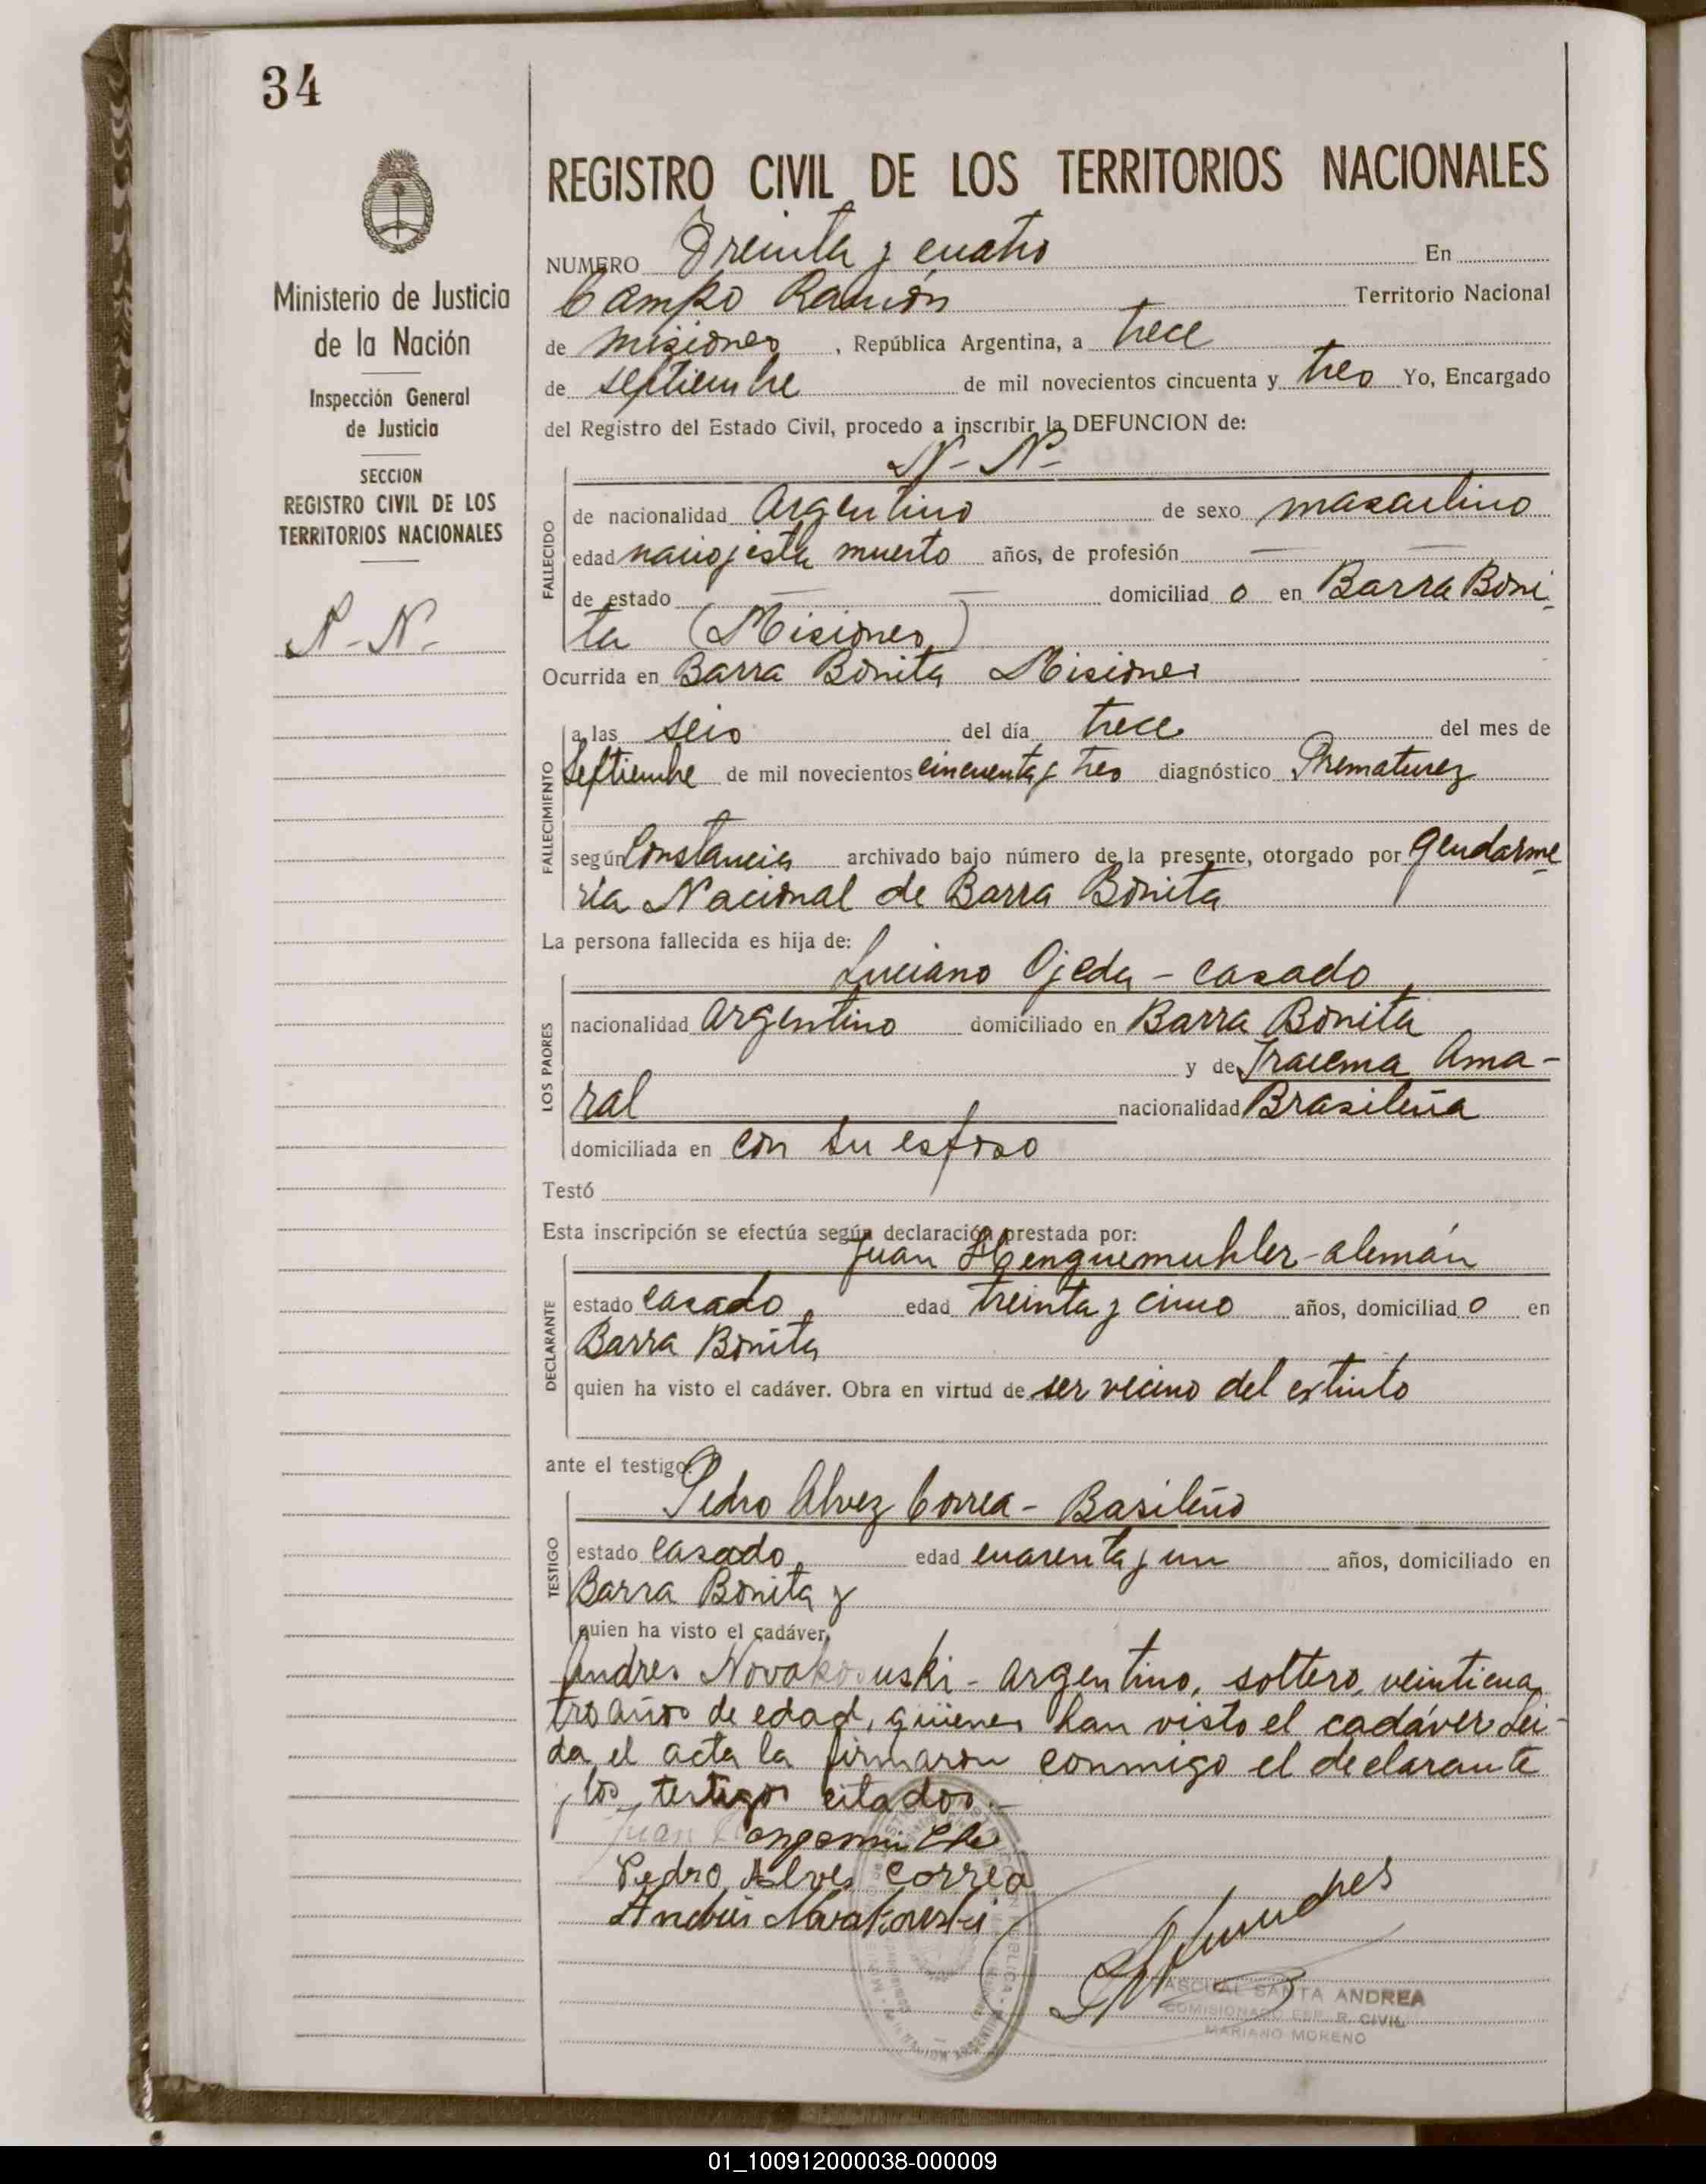 34
Ministerio de Justicia
de la Nación
Inspección General
de Justicia
SECCION
REGISTRO CIVIL DE LOS
TERRITORIOS NACIONALES
N - N.
REGISTRO CIVIL DE LOS TERRITORIOS NACIONALES
NUMERO Treinta y cuatro En
Campo Ramón Territorio Nacional
de Misiones, República Argentina, a trece
de septiembre de mil novecientos cincuenta y tres Yo, Encargado
del Registro del Estado Civil, procedo a inscribir la DEFUNCION de:
N- N-
FALLECIDO
de nacionalidad Argentino de sexo masculino
edad nacio y esta muerto años, de profesión —
de estado — domiciliad o en Barra Boni-
ta (Misiones)
Ocurrida en Barra Bonita Misiones
FALLECIMIENTO
a las seis del día trece del mes de
Septiembre de mil novecientos cincuenta y tres diagnóstico Prematurez
según Constancia archivado bajo número de la presente, otorgado por Gendarme-
ria Nacional de Barra Bonita
La persona fallecida es hija de:
LOS PADRES
Luciano Ojeda - casado,
nacionalidad argentino domiciliado en Barra Bonita
y de Iracema Ama-
ral nacionalidad Brasileña
domiciliada en con su esposo
Testó
Esta inscripción se efectúa según declaración prestada por:
DECLARANTE
Juan Henguemuhler - alemán
estado casado, edad treinta y cinco años, domiciliad o en
Barra Bonita
quien ha visto el cadáver. Obra en virtud de ser vecino del extinto
ante el testigo:
TESTIGO
Pedro Alvez Correa - Basileño
estado casado, edad cuarenta y un años, domiciliado en
Barra Bonita y
quien ha visto el cadáver,
Andres Novakouski - argentino, soltero, veinticua
tro años de edad, quienes han visto el cadáver. Lei-
da el acta la firmaron conmigo el declarante
y los testigos citados.-
Juan
Pedro Alves Correa
Andres Novakouski
PASCUAL SANTA ANDREA
COMISIONADO ESP. R. CIVIL
MARIANO MORENO
01_100912000038-000009